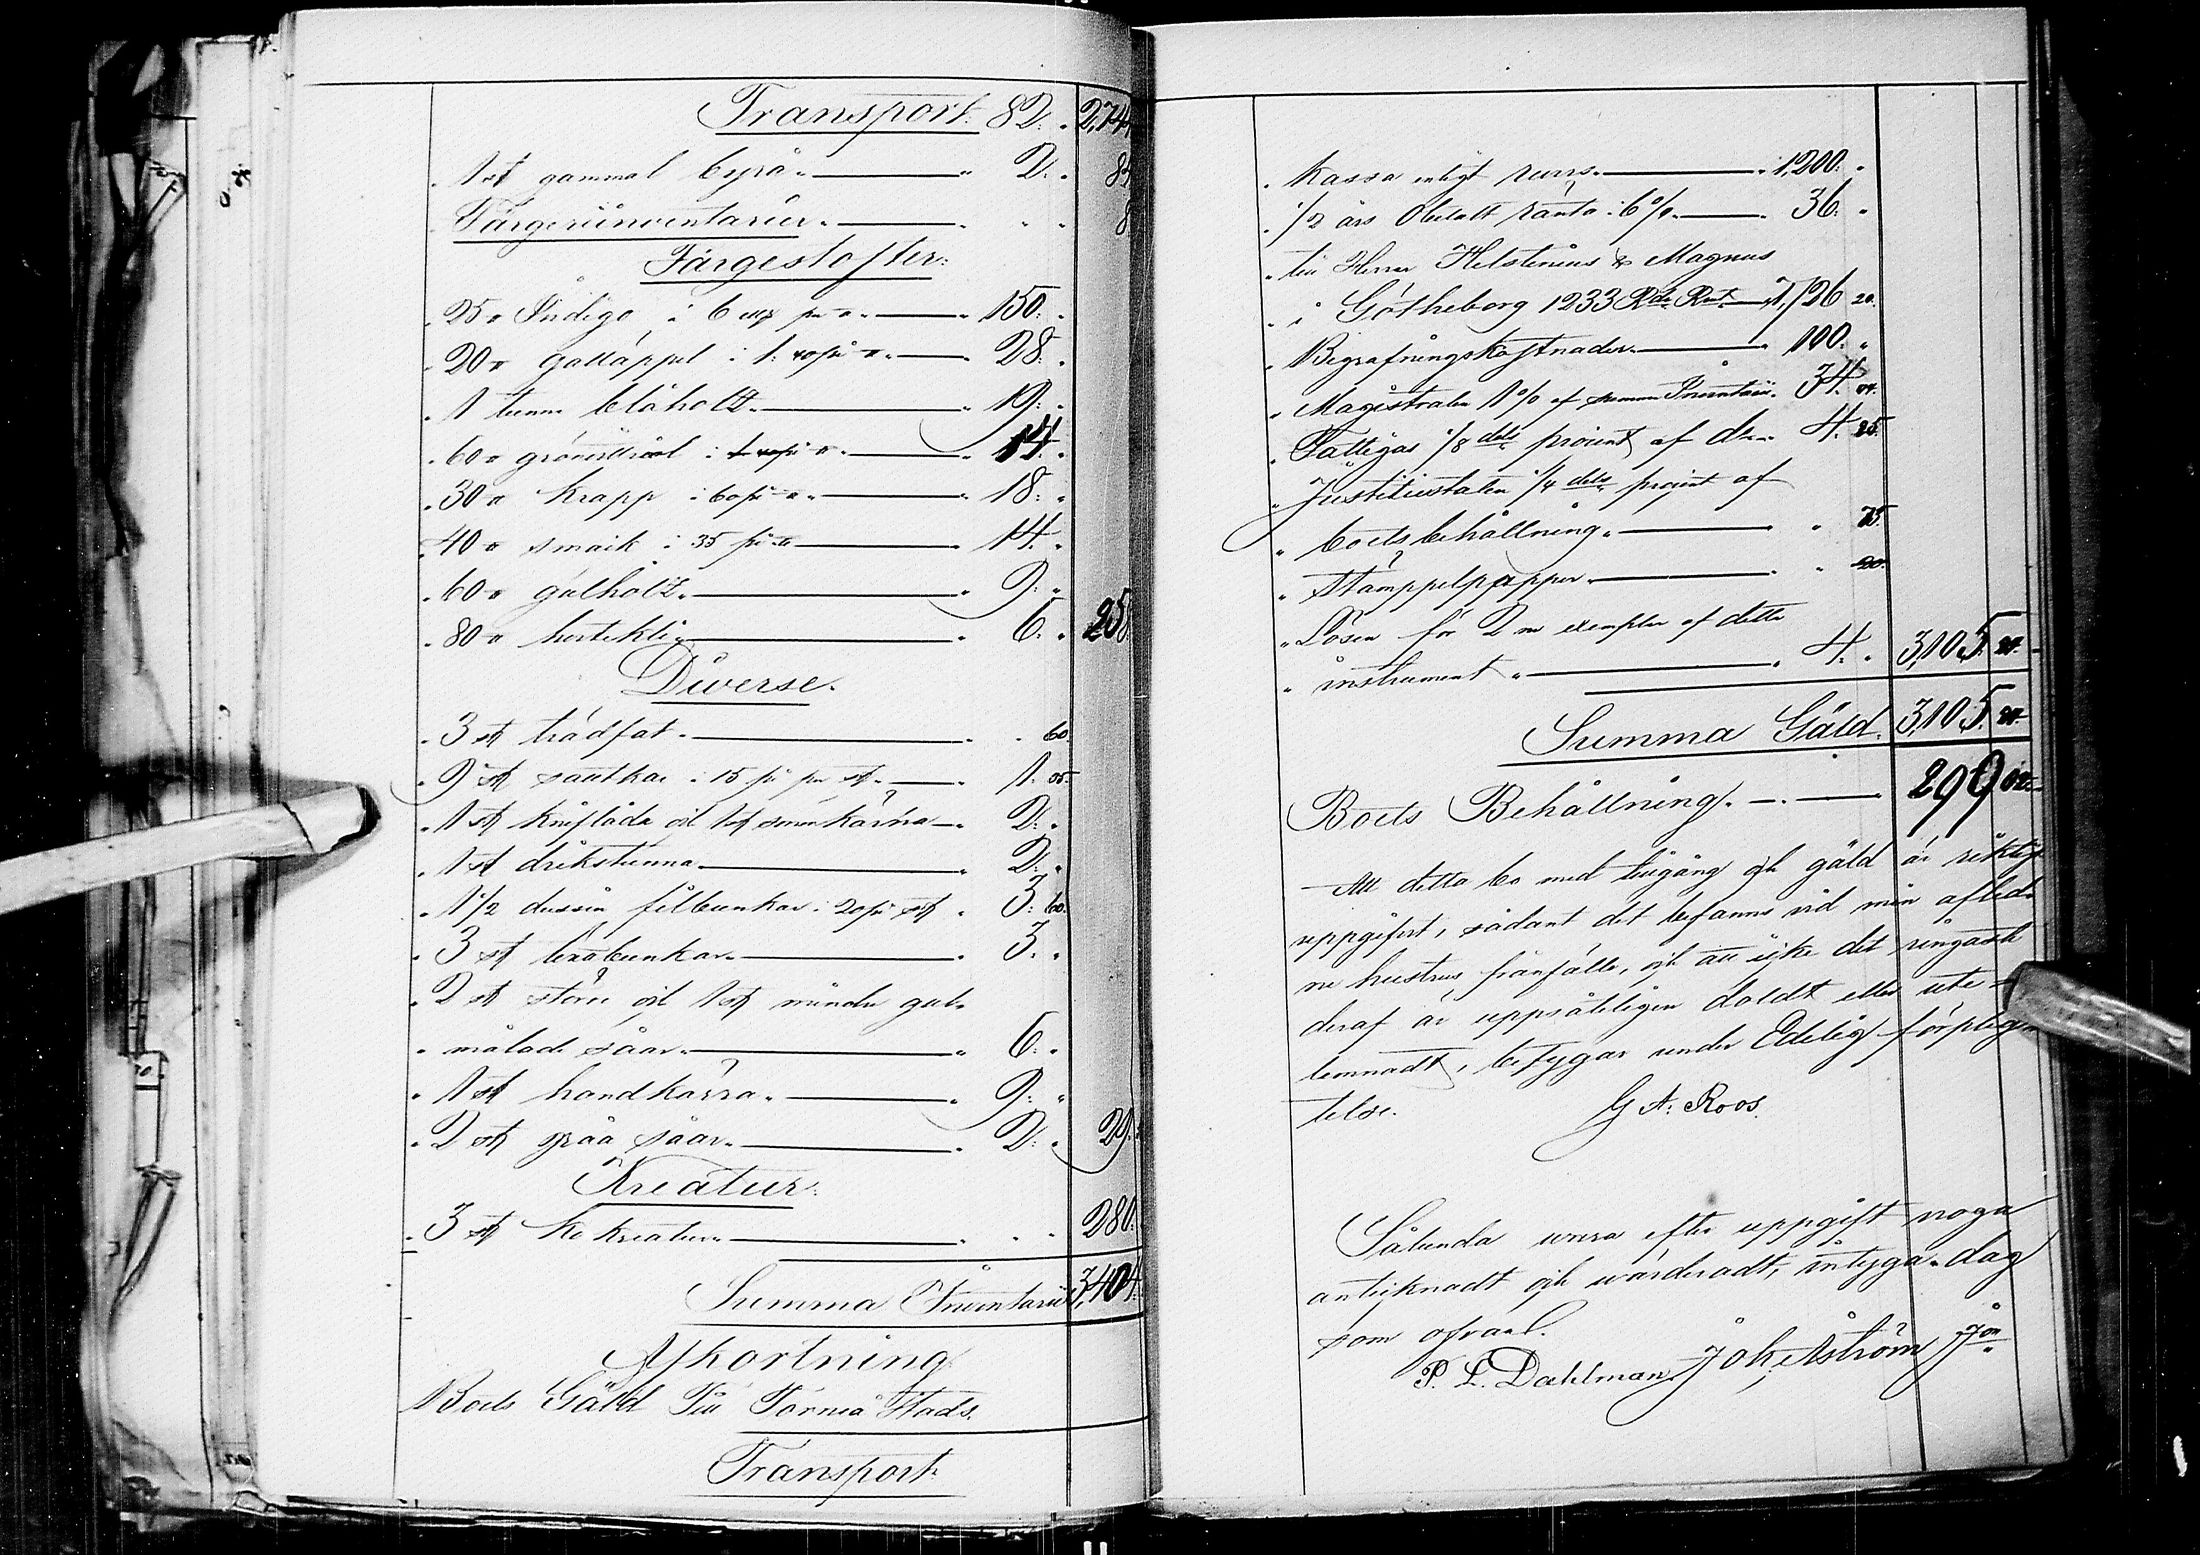 Transport. 82. " 2,74
" 1 st gammal byrå " 2. " 8
Färgeriinventarier " " " 8
Färgestofter:
" 25 ℔ Indigo à 6 mk per ℔ " 150. "
" 20 ℔ galläppel i 1: 40 pi ℔ " 28. "
" 1 tunna blåholtz " 19. "
" 60 ℔ i ℔ " 14. "
" 30 ℔ Krapp i 60 pi ℔ " 18. "
" 40 ℔ smack i 35 pi ℔ " 14. "
" 60 ℔ gulholtz " 9. "
" 80 ℔ " 6. " 258
Diverse.
" 3 st trädfat " " 60.
" 9 st saltkar i 15 pi per st " 1. 35.
" 1 st kniflåda och 1 st smörkärna 2. "
" 1 st drikstunna 2. "
" 1 1/2 dussin filbunkar i 20 pi st " 3. 60.
" 3 st bunkar " 3. "
" 2 st större och 1 st mindre gul-
" målade såar " 6. "
" 1 st handkärra " 9. "
" 2 st gråa såar " 2. " 29.
Kreatur:
" 3 st Ko kreatur " " " 280.
Summa Inventarii 3,404.
Afkortning
Boets Gäld Till Torneå Stads.
Transport.
" Kassa enligt revers " 1,200. "
" 1/2 års Obetalt ränta i 6 % " 36. "
" till Herrar Helstenius & Magnus
" i Götheborg 1233 Rdr Rmt 1,726 20.
" Begrafningskostnader " 100. "
" Magistraten 1 % af summa Inventarii " 34. 04.
" Fattigas 1/8 dels procent af do " 4. 25.
" Justitiestaten 1/4 dels procent af
" boets behållning " " 75.
" Stämppelpapper " " 20.
" Lösen för 2 ne exemplar af detta
" instrument " " 4. " 3,105.
Summa Gäld. 3,105.
Boets Behållning. 299 02
Att detta bo med tillgång och gäld är riktigt
uppgifvit, sådant det befanns vid min aflid-
ne hustrus frånfälle, och att icke det ringaste
deraf är uppsåteligen doldt eller ute-
lemnadt, betygar under Edelig förplig-
telse. G A. Roos.
Sålunda vara efter uppgift noga
antecknadt och värderadt, intyga. dag
som ofvan.
P. L. Dahlman.